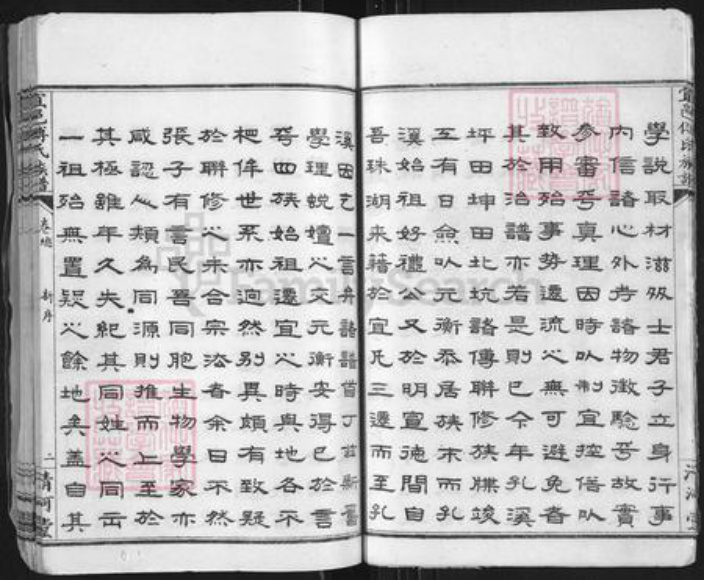 學說取材滋士君子立身行事
內信諸心外考諸物徵驗乎故實
參審乎真理因時以制宜控偕以
致用殆事勢遷流之無可避免者
其於治譜亦若是則已今年孔溪
坪田坤田北坑諸傅聯修族牒竣
工有日僉以元衡忝居族末而孔
溪始祖好禮公又於明宣德間自
吾珠湖來藉於宜凡三遷而至孔
溪因乞一言弁諸譜首丁茲新舊
學理蛻嬗之交元衡安得已於言
乎四族始祖遷宜之時與地各不
相侔世系亦迥然別異頗有致疑
於聯修之未合宗法者余曰不然
張子有言民吾同胞生物學家亦
咸認人類為同源則推而上至於
其極雖年久失紀其同姓之同出
一祖殆無置疑之餘地矣蓋自其
宜邑傅氏族譜 卷總 新序 二 清河堂
FamilySearch